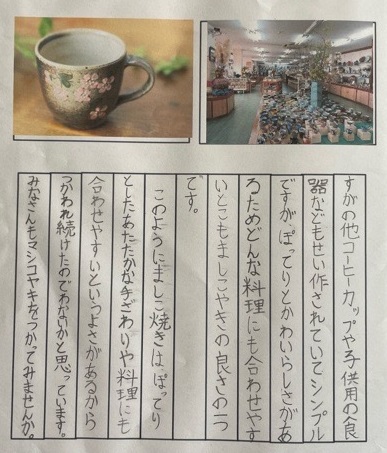 すがの他コーヒーカップや子供用の食
器などもせい作されていてシンプル
ですが、ぽってりとかわいらしさがあ
るためどんな料理にも合わせやす
いとこもましこやきの良さの一つ
です。
このようにましこ焼きは、ぽってり
としたあたたかな手ざわりや料理にも
合わせやすいというよさがあるから
つかわれ続けたのでわないかと思っています。
みなさんもマシコヤキをつかってみませんか。